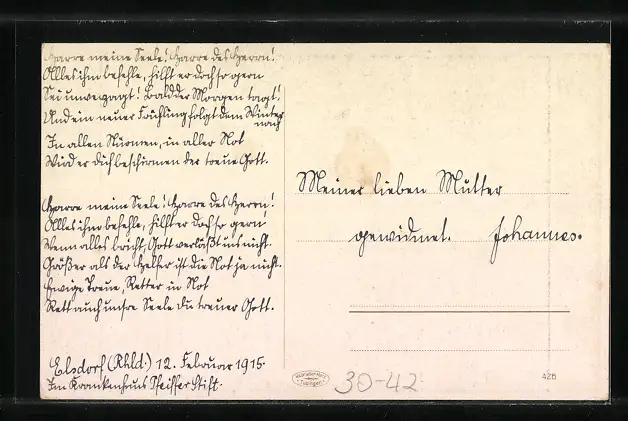 Harre meine Seele! Harre des Herrn!
Alles ihm befehle, hilft er doch so gern
Sei unverzagt! Bald der Morgen tagt!
Und ein neuer Frühling folgt dem Winter
nach
In allen Stürmen, in aller Not
Wird er dich beschirmen der treue Gott.
Harre meine Seele! Harre des Herrn!
Alles ihm befehle, hilft er doch so gern
Wenn alles bricht, Gott verläßt uns nicht
Größer als der Helfer ist die Not ja nicht.
Ewige Treue, Retter in Not
Rett auch unsre Seele du treuer Gott.
Elsdorf (Rhld.) 12. Februar 1915.
Im Krankenhaus Pfeiffer Stift.
Meiner lieben Mutter
gewidmet. Johannes.
30-42
426